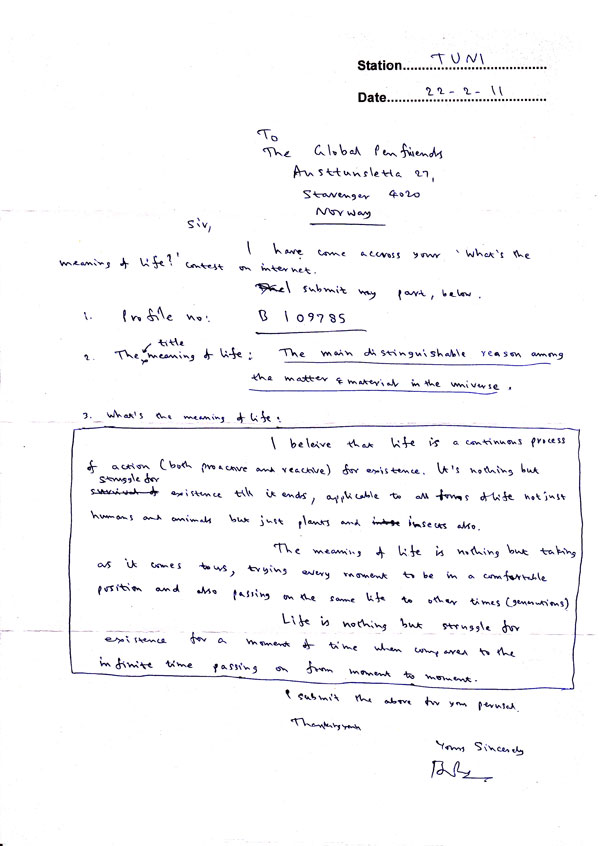 Station.......TUNI.......
Date.......22-2-11.......
To
The Global Penfriends
Austtunsletta 27,
Stavenger 4020
Norway
Sir,
I have come accross your 'What's the
meaning of life?' contest on internet.
I submit my part, below.
1. Profile no: B 109785
title
2. The meaning of life: The main distinguishable reason among
the matter & material in the universe.
3. What's the meaning of life:
I beleive that life is a continuous process
of action (both proactive and reactive) for existence. It's nothing but
struggle for
survival of existence till it ends, applicable to all forms of life not just
humans and animals but just plants and insects also.
The meaning of life is nothing but taking
as it comes to us, trying every moment to be in a comfortable
position and also passing on the same life to other times (generations)
Life is nothing but struggle for
existence for a moment of time when compared to the
infinite time passing on from moment to moment.
I submit the above for you perusal.
Thanking you
Yours Sincerely